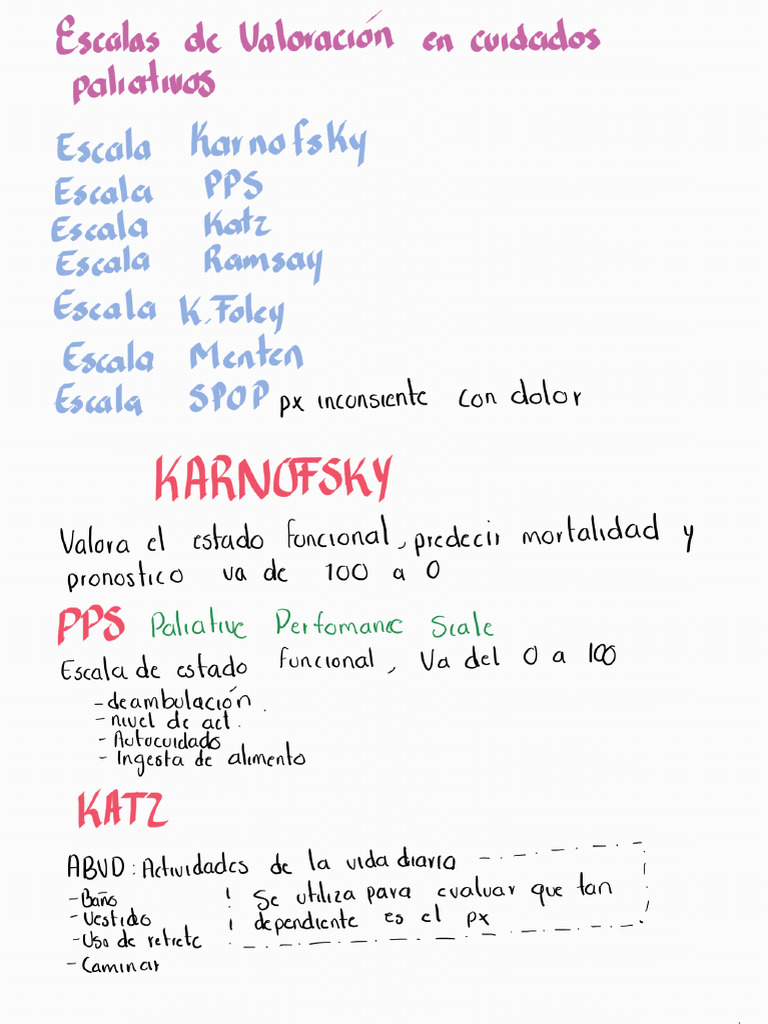 Escalas de Valoración en cuidados
paliativos
Escala Karnofsky
Escala PPS
Escala Katz
Escala Ramsay
Escala K. Foley
Escala Menten
Escala SPOP px inconsiente con dolor
KARNOFSKY
Valora el estado funcional, predecir mortalidad y
pronostico va de 100 a 0
PPS Paliative Perfomance Scale
Escala de estado funcional, Va del 0 a 100
- deambulación.
- nivel de act.
- Autocuidado
- Ingesta de alimento
KATZ
ABVD: Actividades de la vida diaria
- Baño
- Vestido
- Uso de retrete
- Caminar
Se utiliza para evaluar que tan
dependiente es el px